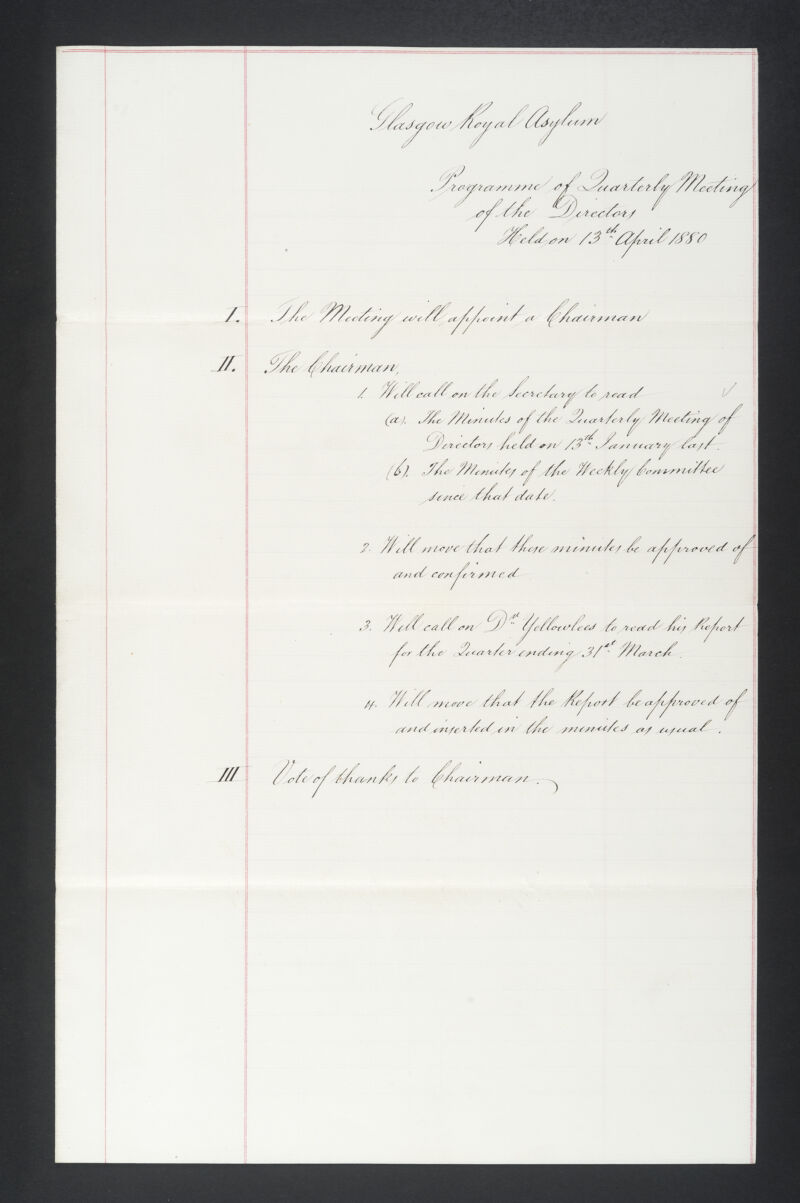 Glasgow Royal Asylum
Programme of Quarterly Meeting
of the Directors
Held on 13th April 1880
I. The Meeting will appoint a Chairman
II. The Chairman,
1. Will call on the Secretary to read
(a). The Minutes of the Quarterly Meeting of
Directors held on 13th January last.
(b). The Minutes of the Weekly Committee
since that date.
2. Will move that these minutes be approved of
and confirmed
3. Will call on Dr Yellowlees to read his Report
for the Quarter ending 31st March.
4. Will move that the Report be approved of
and inserted in the minutes as usual.
III Vote of thanks to Chairman.